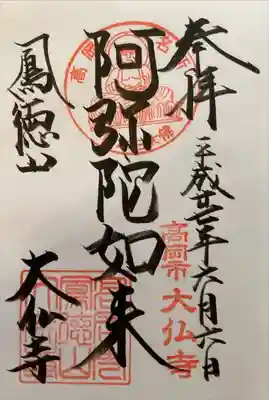 奉拝
平成廿二年六月六日
高岡市 大仏寺
阿弥陀如来
鳳徳山
大仏寺